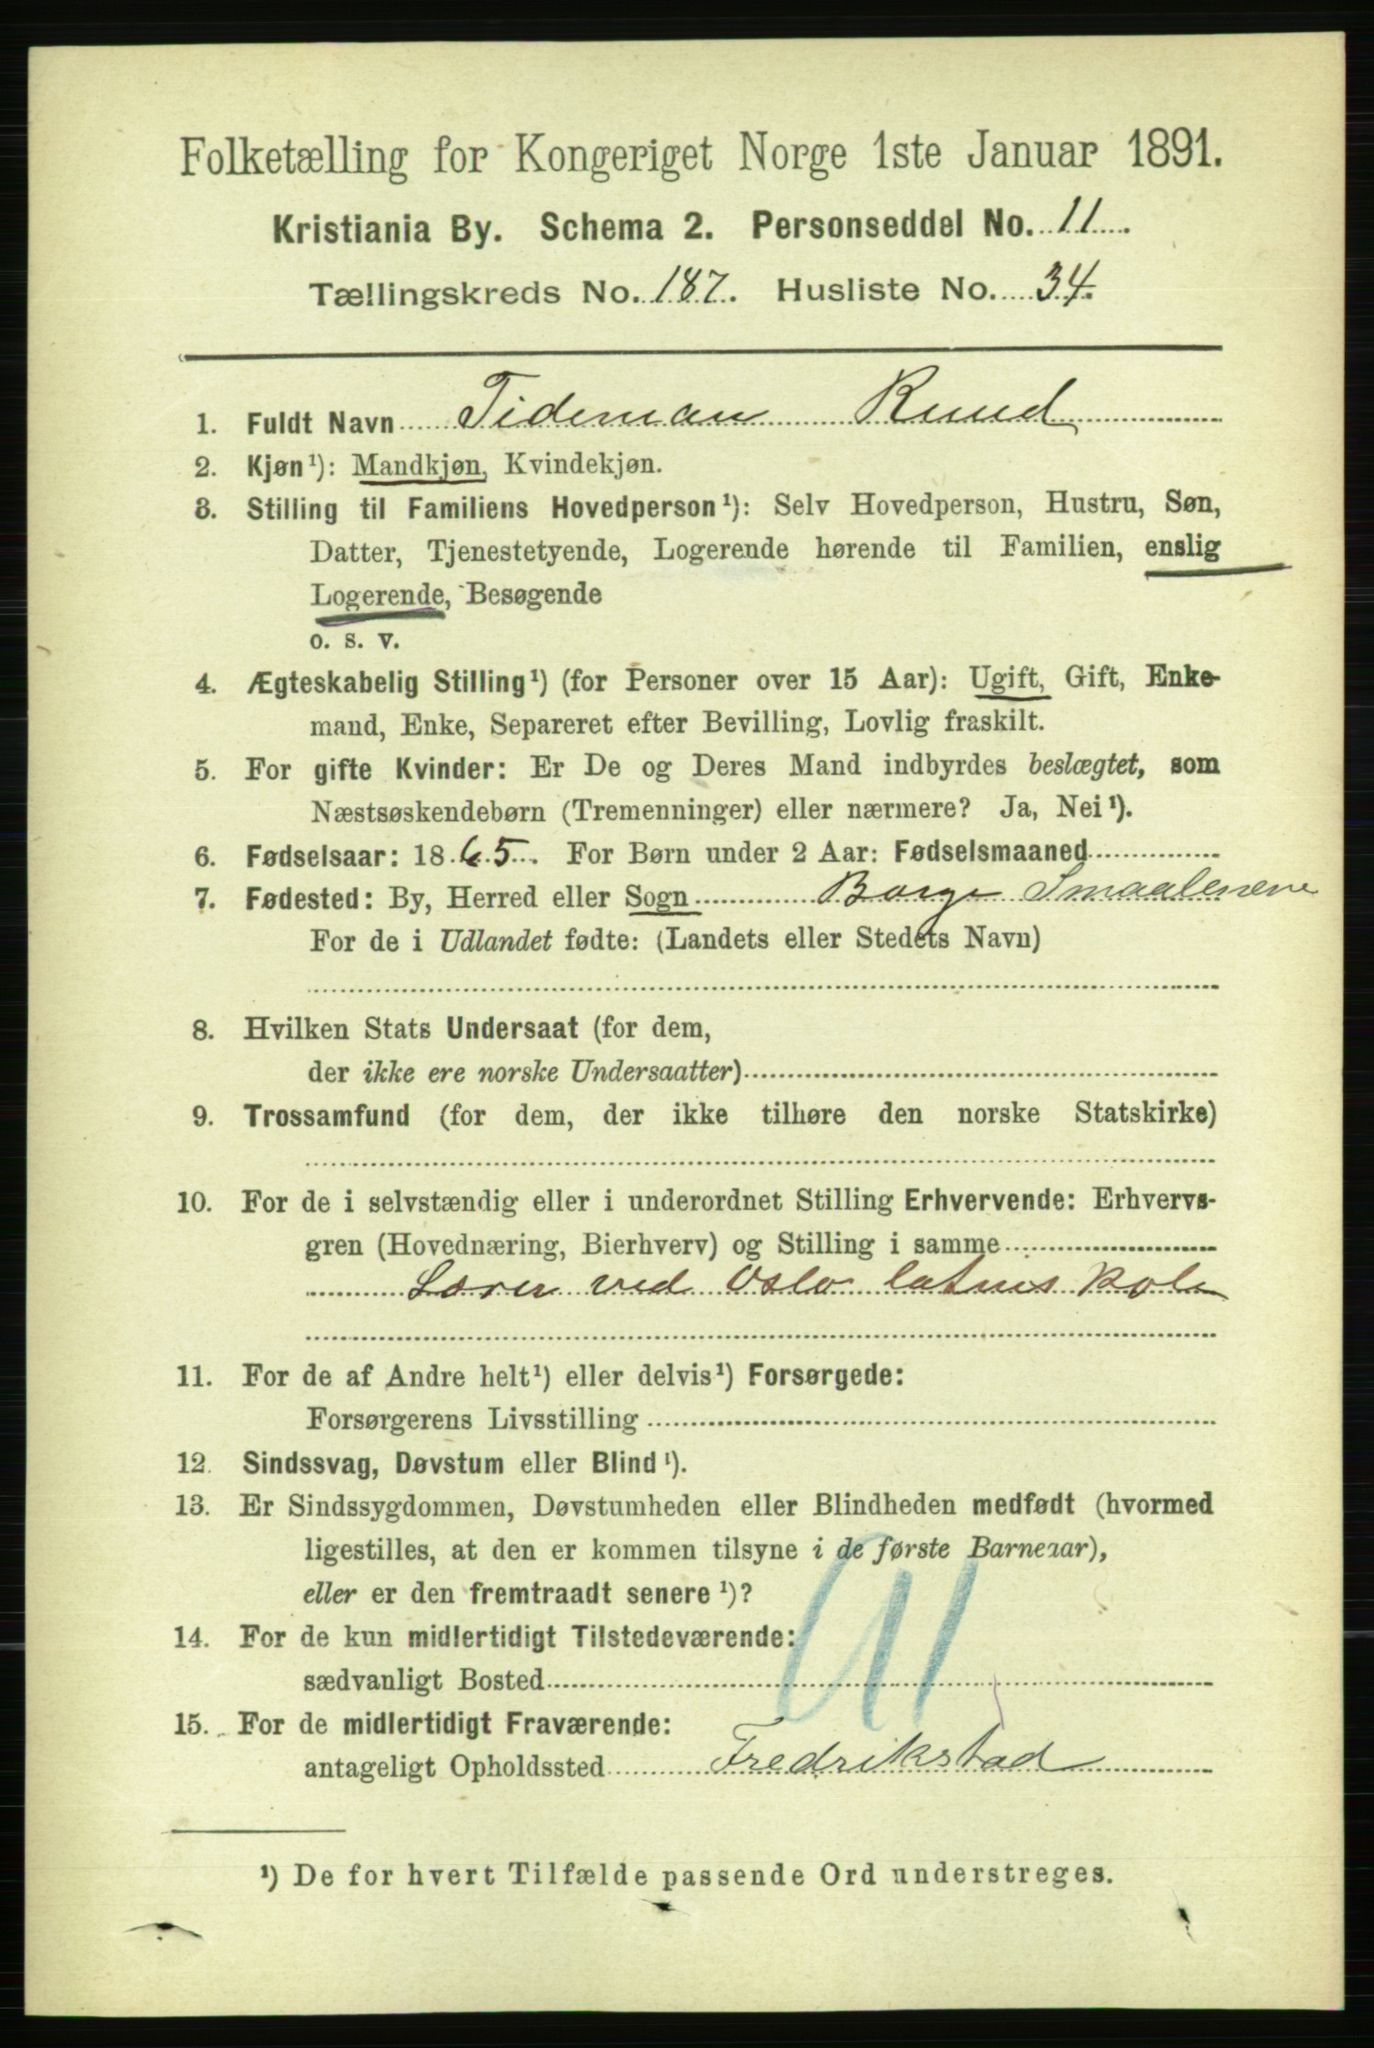 Folketælling for Kongeriget Norge 1ste Januar 1891.
Kristiania By. Schema 2. Personseddel No. 11
Tællingskreds No. 187. Husliste No. 34.
1. Fuldt Navn Tideman Ruud
2. Kjøn¹): Mandkjøn, Kvindekjøn.
3. Stilling til Familiens Hovedperson¹): Selv Hovedperson, Hustru, Søn,
Datter, Tjenestetyende, Logerende hørende til Familien, enslig
Logerende, Besøgende
o. s. v.
4. Ægteskabelig Stilling¹) (for Personer over 15 Aar): Ugift, Gift, Enke-
mand, Enke, Separeret efter Bevilling, Lovlig fraskilt.
5. For gifte Kvinder: Er De og Deres Mand indbyrdes beslægtet, som
Næstsøskendebørn (Tremenninger) eller nærmere? Ja, Nei¹).
6. Fødselsaar: 1865. For Børn under 2 Aar: Fødselsmaaned
7. Fødested: By, Herred eller Sogn Borge Smaalenene
For de i Udlandet fødte: (Landets eller Stedets Navn)
8. Hvilken Stats Undersaat (for dem,
der ikke ere norske Undersaatter)
9. Trossamfund (for dem, der ikke tilhøre den norske Statskirke)
10. For de i selvstændig eller i underordnet Stilling Erhvervende: Erhvervs-
gren (Hovednæring, Bierhverv) og Stilling i samme
Lærer ved Oslo latinskole
11. For de af Andre helt¹) eller delvis¹) Forsørgede:
Forsørgerens Livsstilling
12. Sindssvag, Døvstum eller Blind¹).
13. Er Sindssygdommen, Døvstumheden eller Blindheden medfødt (hvormed
ligestilles, at den er kommen tilsyne i de første Barneaar),
eller er den fremtraadt senere¹)?
14. For de kun midlertidigt Tilstedeværende:
sædvanligt Bosted
15. For de midlertidigt Fraværende:
antageligt Opholdssted Fredrikstad
¹) De for hvert Tilfælde passende Ord understreges.